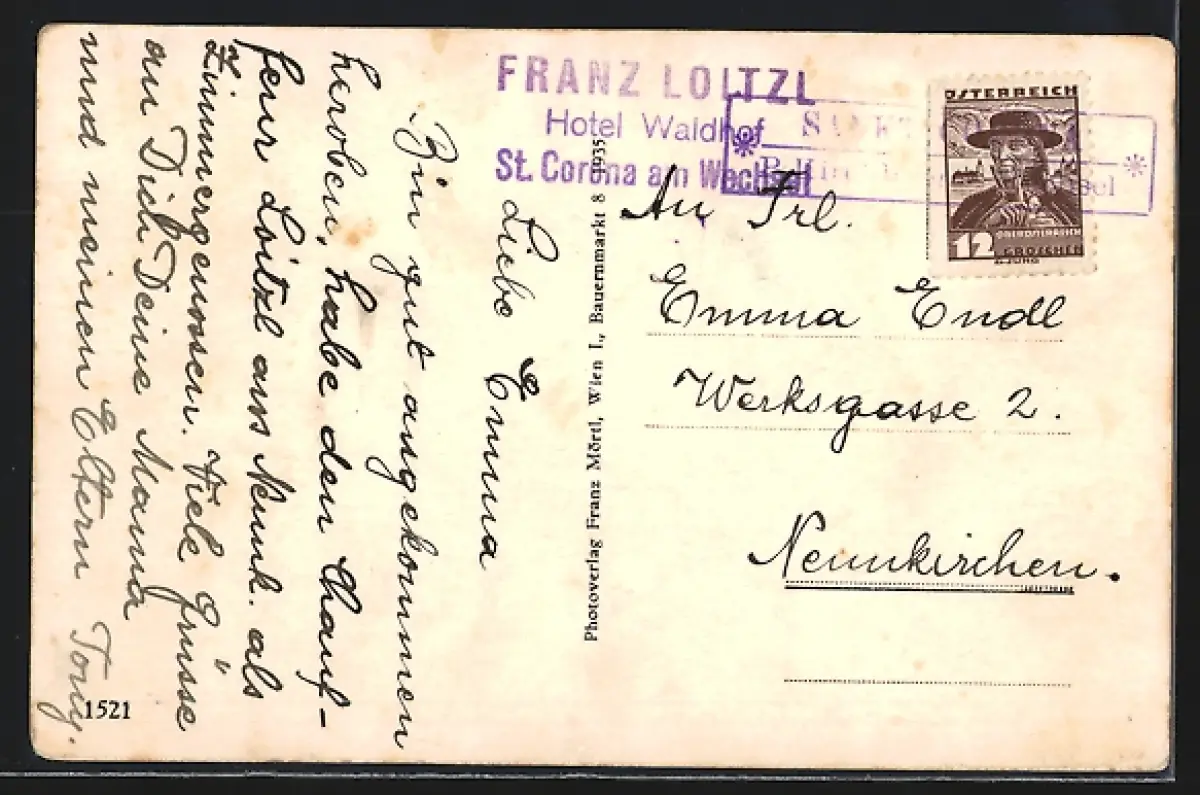 FRANZ LOITZL
Hotel Waldhof
St. Corona am Wechsel
SANKT
ÖSTERREICH
12
OBERÖSTERREICH
GROSCHEN
An Frl.
Emma Endl
Werksgasse 2.
Neunkirchen.
Photoverlag Franz Mörtl, Wien I., Bauernmarkt 8 1935
Liebe Emma
Bin gut angekommen
heroben, habe den Chauf-
feur Loitzl aus Neunk. als
Zimmergenossen. Viele Grüsse
an Dich Deine Mama
und meinen Eltern Tony.
1521